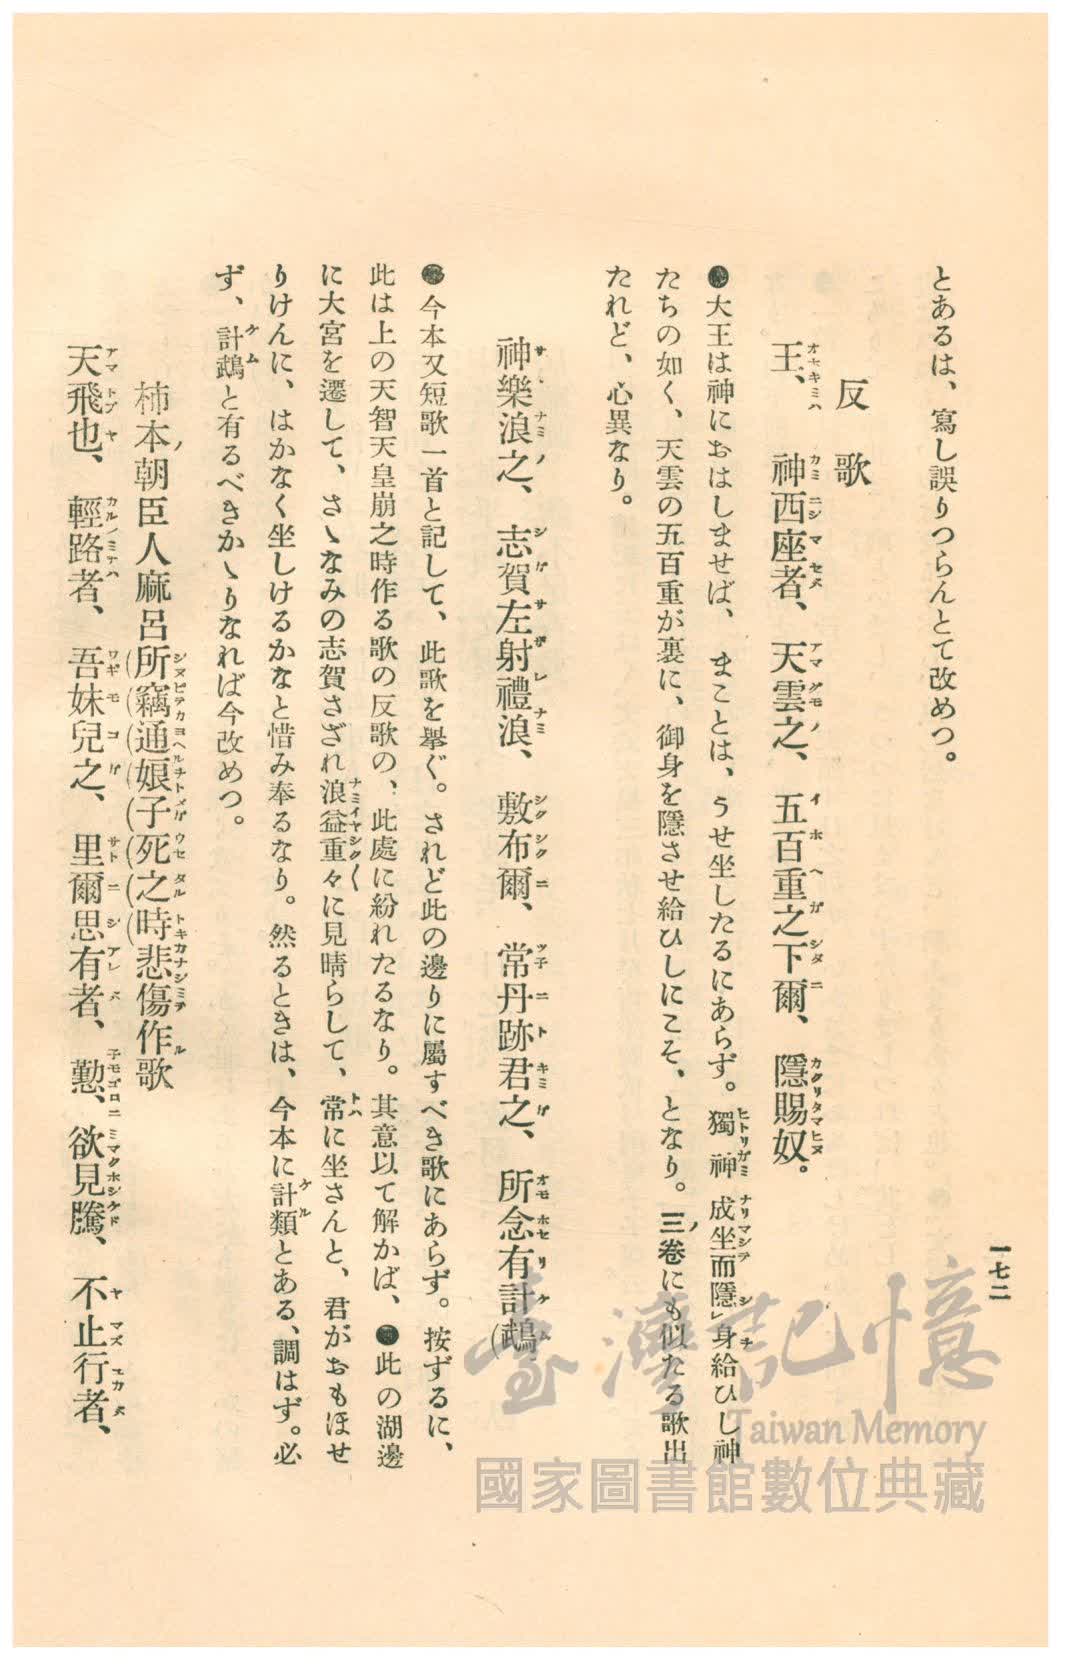 一七二
とあるは、寫し誤りつらんとて改めつ。
反歌
王、神西座者、天雲之、五百重之下爾、隱賜奴。
●大王は神におはしませば、まことは、うせ坐したるにあらず。獨神成坐而隱身給ひし神
たちの如く、天雲の五百重が裏に、御身を隱させ給ひしにこそ、となり。三卷にも似たる歌出
たれど、心異なり。
神樂浪之、志賀左射禮浪、敷布爾、常丹跡君之、所念有計鵡
●今本又短歌一首と記して、此歌を擧ぐ。されど此の邊りに屬すべき歌にあらず。按ずるに、
此は上の天智天皇崩之時作る歌の反歌の、此處に紛れたるなり。其意以て解かば、●此の湖邊
に大宮を遷して、さゝなみの志賀さざれ浪益重々に見晴らして、常に坐さんと、君がおもほせ
りけんに、はかなく坐しけるかなと惜み奉るなり。然るときは、今本に計類とある、調はず。必
ず、計鵡と有るべきかゝりなれば今改めつ。
柿本朝臣人麻呂所竊通娘子死之時悲傷作歌
天飛也、輕路者、吾妹兒之、里爾思有者、懃、欲見騰、不止行者、
臺灣記憶
Taiwan Memory
國家圖書館數位典藏